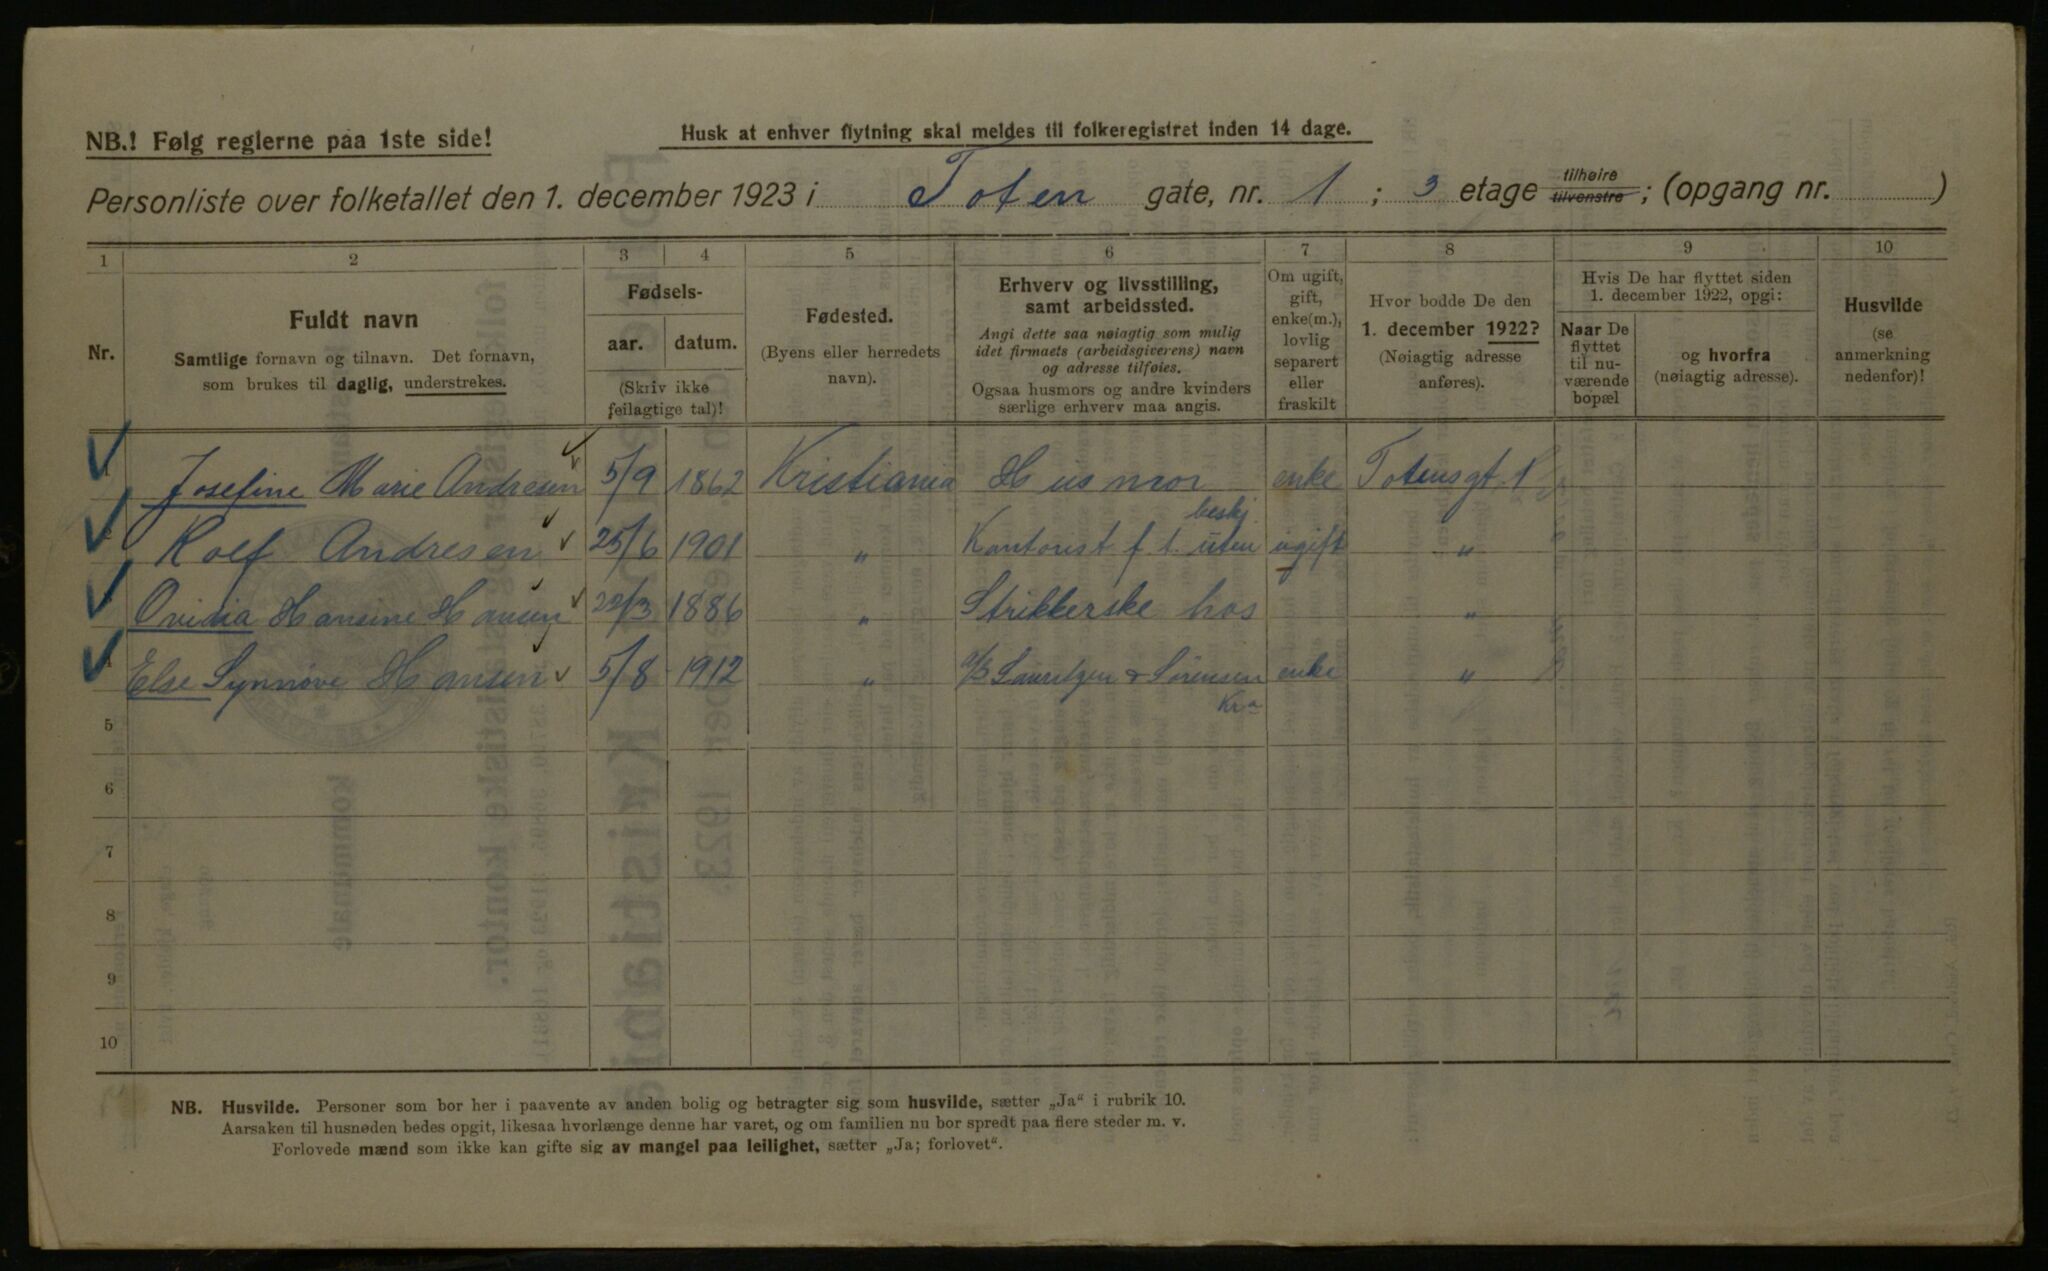 NB.! Følg reglerne paa 1ste side!
Husk at enhver flytning skal meldes til folkeregistret inden 14 dage.
Personliste over folketallet den 1. december 1923 i Toten gate, nr. 1 ; 3 etage tilhøire tilvenstre ; (opgang nr. )
1 2 3 4 5 6 7 8 9 10
Nr.
Fuldt navn
Samtlige fornavn og tilnavn. Det fornavn,
som brukes til daglig, understrekes.
Fødsels-
aar. datum.
(Skriv ikke
feilagtige tal)!
Fødested.
(Byens eller herredets
navn).
Erhverv og livsstilling,
samt arbeidssted.
Angi dette saa nøiagtig som mulig
idet firmaets (arbeidsgiverens) navn
og adresse tilføies.
Ogsaa husmors og andre kvinders
særlige erhverv maa angis.
Om ugift,
gift,
enke(m.),
lovlig
separert
eller
fraskilt
Hvor bodde De den
1. december 1922?
(Nøiagtig adresse
anføres).
Hvis De har flyttet siden
1. december 1922, opgi:
Naar De
flyttet
til nu-
værende
bopæl
og hvorfra
(nøiagtig adresse).
Husvilde
(se
anmerkning
nedenfor)!
1 Josefine Marie Andresen 5/9 1862 Kristiania Husmor enke Totensgt. 1
beskj.
2 Rolf Andresen 25/6 1901 " Kontorist f. t. uten ugift "
Ovidia Hansine Hansen 22/3 1886 " Strikkerske hos "
4 Else Synnøve Hansen 5/8 1912 " A/S Lauritzen & Sørensen enke "
Kra
5
6
7
8
9
10
NB. Husvilde. Personer som bor her i paavente av anden bolig og betragter sig som husvilde, sætter „Ja“ i rubrik 10.
Aarsaken til husnøden bedes opgit, likesaa hvorlænge denne har varet, og om familien nu bor spredt paa flere steder m. v.
Forlovede mænd som ikke kan gifte sig av mangel paa leilighet, sætter „Ja; forlovet“.